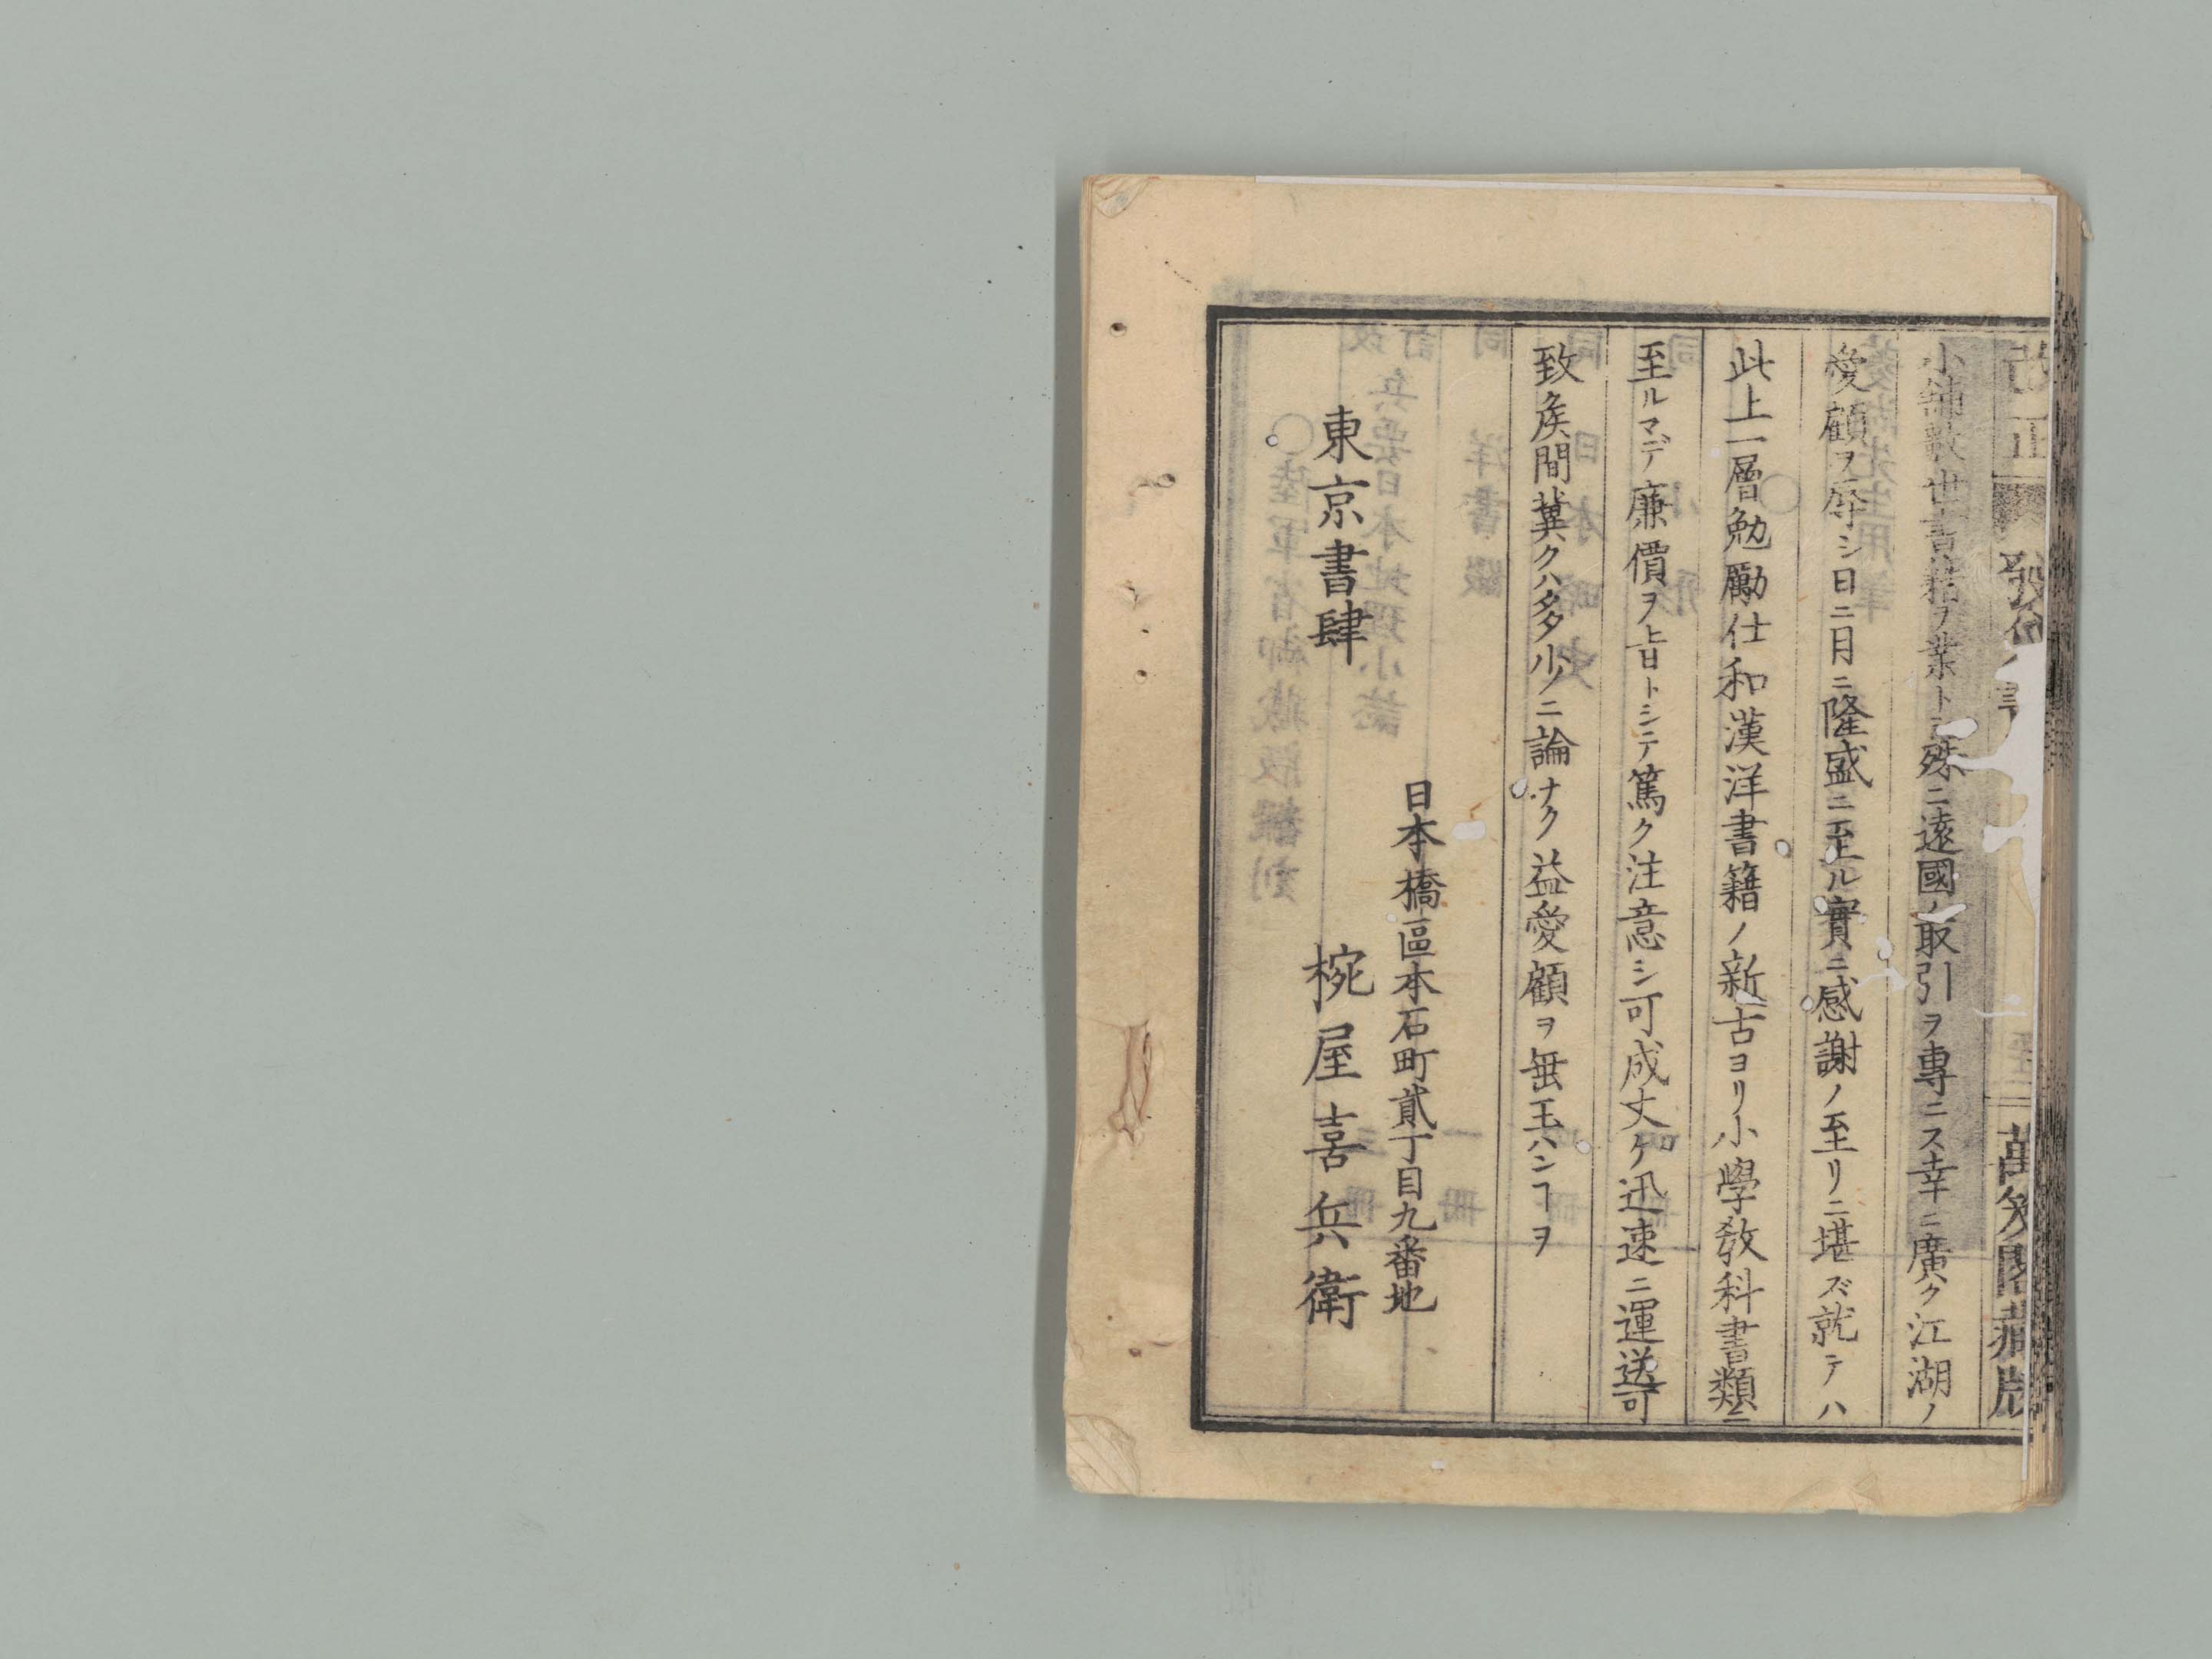 小舗數世書籍ヲ業トシ殊ニ遠國ノ取引ヲ專ニス幸ニ廣ク江湖ノ
愛顧ヲ辱シ日ニ月ニ隆盛ニ至ル實ニ感謝ノ至リニ堪ズ就テハ
此上一層勉勵仕和漢洋書籍ノ新古ヨリ小學教科書類ニ
至ルマデ廉價ヲ旨トシテ篤ク注意シ可成丈ケ迅速ニ運送可
致矦間冀クハ多少ノニ論ナク益愛顧ヲ垂玉ハンヿヲ
日本橋區本石町貳丁目九番地
東京書肆 椀屋喜兵衛
萬笈閣藏版